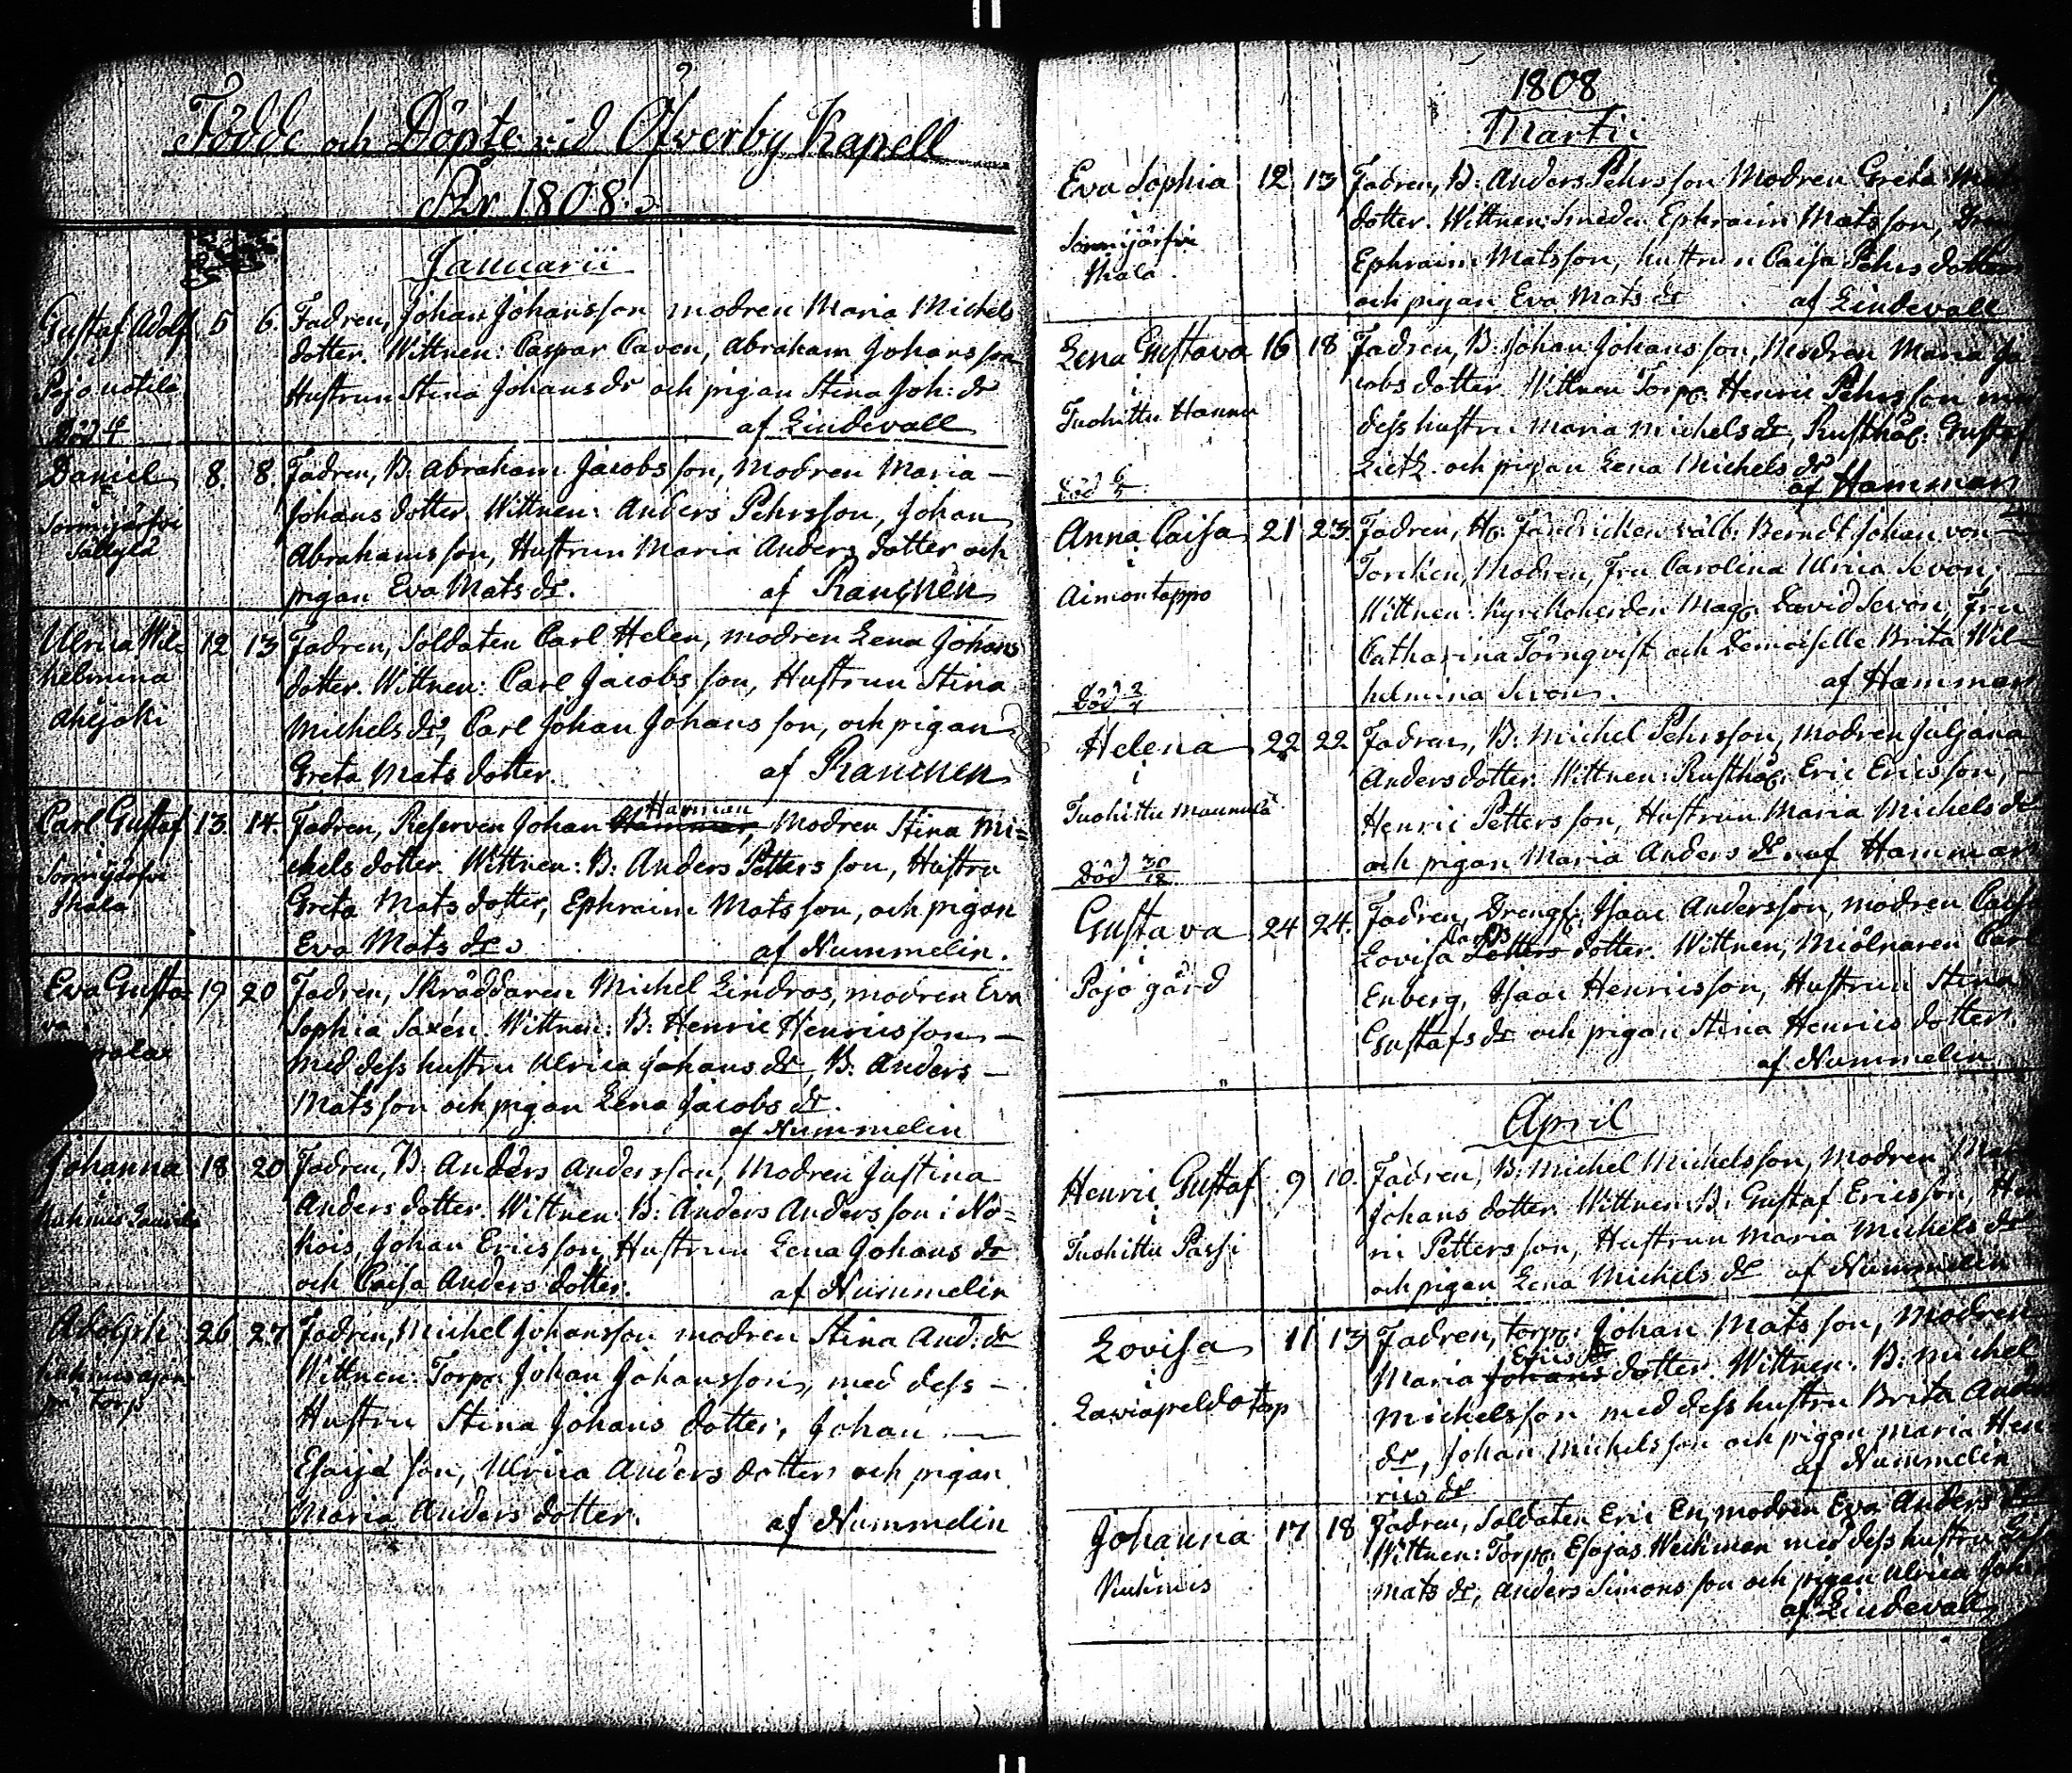 Födde och Döpte vid Öfverby Kapell
År 1808.
Januarii
Gustaf Adolf 5 6. Fadren, Johan Johansson modren Maria Michels
dotter. Wittnen: Caspar Caven, Abraham Johansson
i Pojo
Hustrun Stina Johans dr och pigan Stina Joh: dr
Död
af Lindevall
Daniel 8. 8. Fadren, B. Abraham Jacobsson, Modren Maria –
Johans dotter. Wittnen: Anders Pehrsson, Johan
Sormijärfvi
Abrahamsson, Hustrun Maria Anders dotter och
pigan Eva Mats dr. af
Ulrica Wil- 12 13 Fadren, Soldaten Carl Helen, modren Lena Johans
helmina
dotter. Wittnen: Carl Jacobsson, Hustrun Stina
Michels dr, Carl Johan Johansson, och pigan
Greta Mats dotter. af
Carl Gustaf 13. 14. Fadren, Reserven Johan Harman Hammar, Modren Stina Mi=
chels dotter. Wittnen: B: Anders Petters son, Hustru
Sormijärfvi
Greta Mats dotter, Ephraim Matsson, och pigan
Eva Mats dr. af Nummelin.
Eva Gusta= 19 20 Fadren, Skräddaren Michel Lindros, modren Eva
va
Sophia Saxén. Wittnen: B: Henric Henricsson –
med dess hustru Ulrica Johans dr, B: Anders –
Matsson och pigan Lena Jacobs dr.
af Nummelin
Johanna 18 20 Fadren, B: Anders Andersson, Modren Justina
Anders dotter. Wittnen: B: Anders Andersson i No=
kois, Johan Ericsson, Hustrun Lena Johans dr
och Caisa Anders dotter. af Nummelin
Adolph 26 27 Fadren, Michel Johansson modren Stina And: dr
Wittnen: Torp: Johan Johansson, med dess –
Torp
Hustru Stina Johans dotter, Johan –
Esaije son, Ulrica Anders dotter och pigan
Maria Anders dotter. af Nummelin
1808
Martii
Eva Sophia 12 13 Fadren, B: Anders Pehrsson Modren Greta
dotter. Wittnen: Smeden Ephraim Matsson,
i Sormijärfvi
Ephraim Matsson, hustrun Caisa Pehrs dotter
och pigan Eva Mats dr af Lindevall
Lena Gustava 16 18 Fadren, B: Johan Johansson, Modren Maria Ja
cobs dotter. Wittnen Torp: Henric Pehrsson
i Tuohittu Hannu
dess hustru Maria Michels dr, Rusthål: Gustaf
och pigan Lena Michels dr
död
af Hammar
Anna Caisa 21 23. Fadren, H: Fändricken välb: Berndt Johan von
i Aimontappo
Modren, Fru Carolina Ulrica Sevon,
Wittnen: Kyrckoherden Mag: David Sevon, Fru
Catharina Törnqvist och Demoiselle Brita Wil-
Död
helmina Sevon. af Hammar
Helena 22 22 Fadren, B: Michel Pehrsson, modren Juljana
Anders dotter. Wittnen: Rusthål: Eric Ericsson,
i Tuohittu
Henric Petters son, Hustrun Maria Michels dr
Död 30/12
och pigan Maria Anders dr. af Hammar
Gustava 24 24. Fadren, Dreng: Isaac Andersson, modren Caisa
Lovisa Carls Petters dotter. Wittnen, Miölnaren Carl
i Pojo gård
Enberg, Isaac Henricsson, Hustrun Stina
Gustafs dr och pigan Stina Henrics dotter.
af Nummelin
April
Henric Gustaf 9 10. Fadren, B: Michel Michelsson, modren
Johans dotter. Wittnen B: Gustaf Ericsson, Hen
i Tuohittu Passi
ric Petters son, Hustrun Maria Michels dr
och pigan Lena Michels dr af Nummelin
Lovisa 11 13 Fadren, torp: Johan Matsson, Modren
Maria Erics dr Johans dotter. Wittnen: B: Michel
Michelsson med dess hustru Brita Anders
dr, Johan Michelsson och pigan Maria Hen
rics dr
af Nummelin
Johanna 17 18 Fadren, Soldaten Eric En, modren Eva Anders dr
Wittnen: Torp: Esajas Weckman med dess hustru
Mats dr, Anders Simonsson och pigan Ulrica
af Lindevall